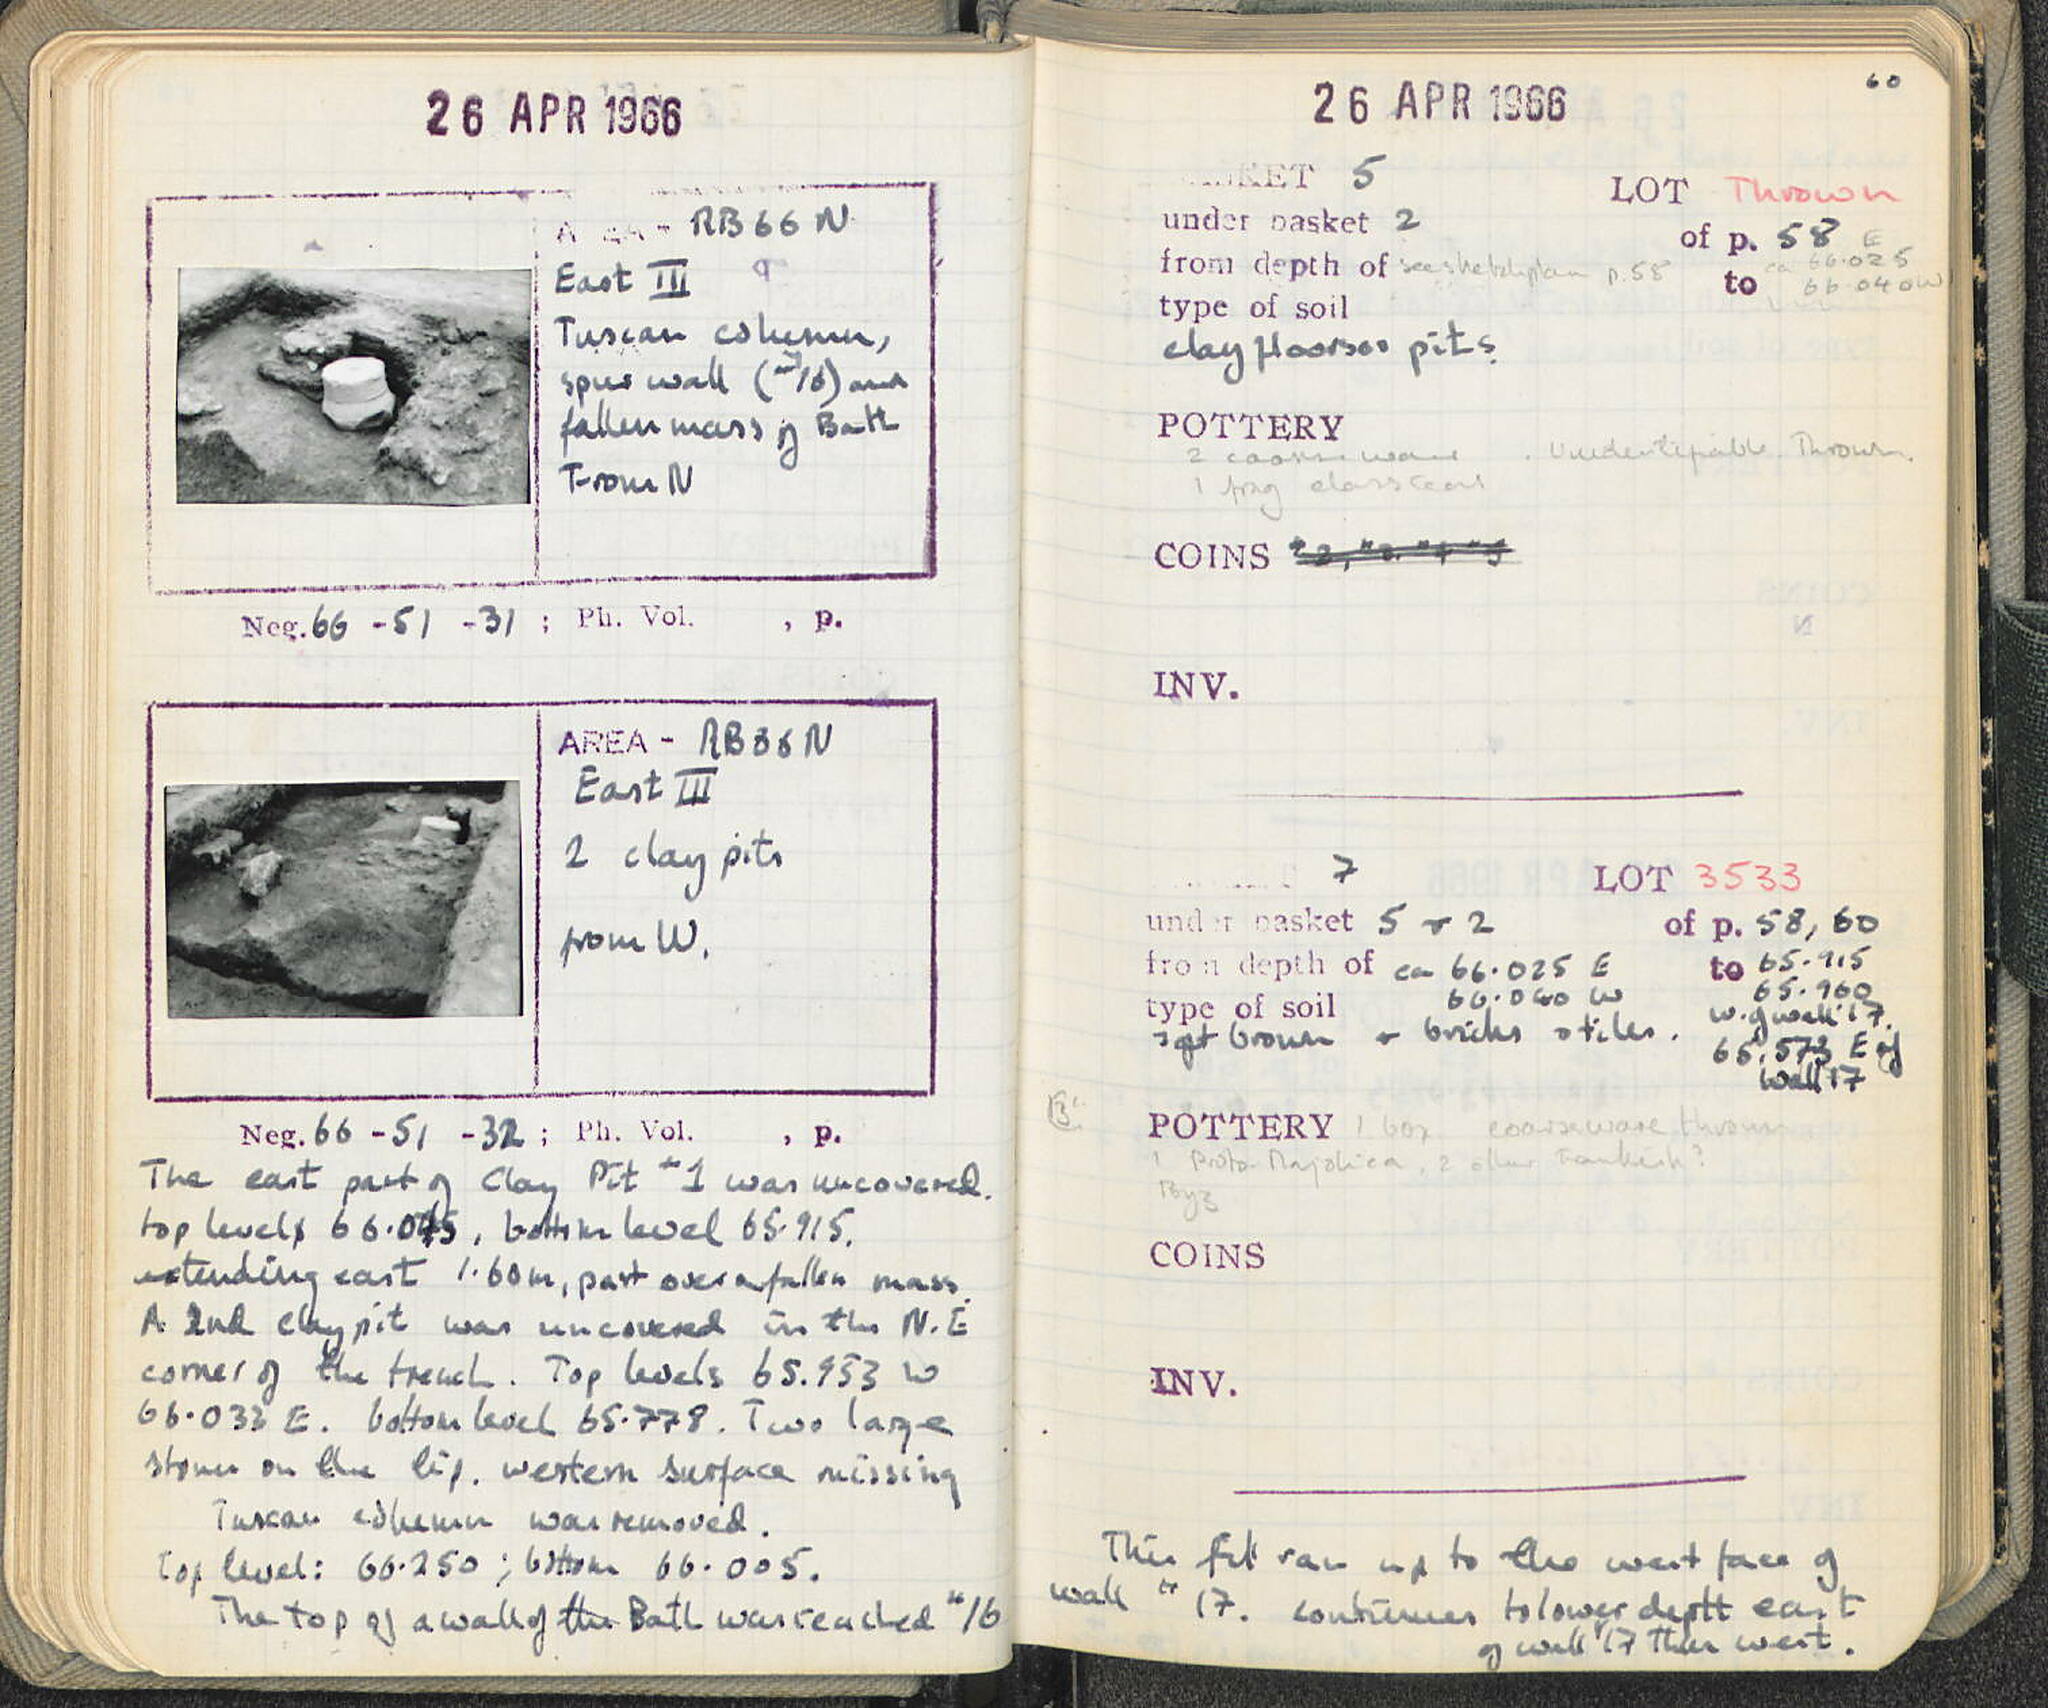 26 APR 1966
AREA - RB66N
East III
Tuscan column,
spur wall (#16) and
fallen mass of Bath
From N
Neg. 66 - 51 - 31 ; Ph. Vol. , p.
AREA - RB66N
East III
2 clay pits
from W.
Neg. 66 - 51 - 32 ; Ph. Vol. , p.
The east part of Clay Pit #1 was uncovered.
top level 66.045, bottom level 65.915.
extending east 1.60m, part over a fallen mass.
A 2nd clay pit was uncovered in the N.E
corner of the trench. Top levels 65.953 W
66.033 E. bottom level 65.778. Two large
stones on the lip. western surface missing
Tuscan column was removed.
Top level: 66.250 ; bottom 66.005.
The top of a wall of the Bath was reached #16
60
26 APR 1966
BASKET 5 LOT Thrown
under basket 2 of p. 58
from depth of see sketch plan p. 58 to ca 66.025 E
66.040 W
type of soil
clay floors or pits.
POTTERY
2 coarse ware . Unidentifiable. Thrown.
1 frag
COINS
INV.
7 LOT 3533
under basket 5 + 2 of p. 58, 60
from depth of ca 66.025 E to 65.915
66.040 W 65.960
type of soil W. of wall 17.
soft brown + bricks + tiles. 65.573 E of
wall 17
POTTERY 1 box coarseware thrown
1 Proto Majolica, 2 other Frankish?
Byz
COINS
INV.
This fill ran up to the west face of
wall #17. continues to lower depth east
of wall 17 than west.